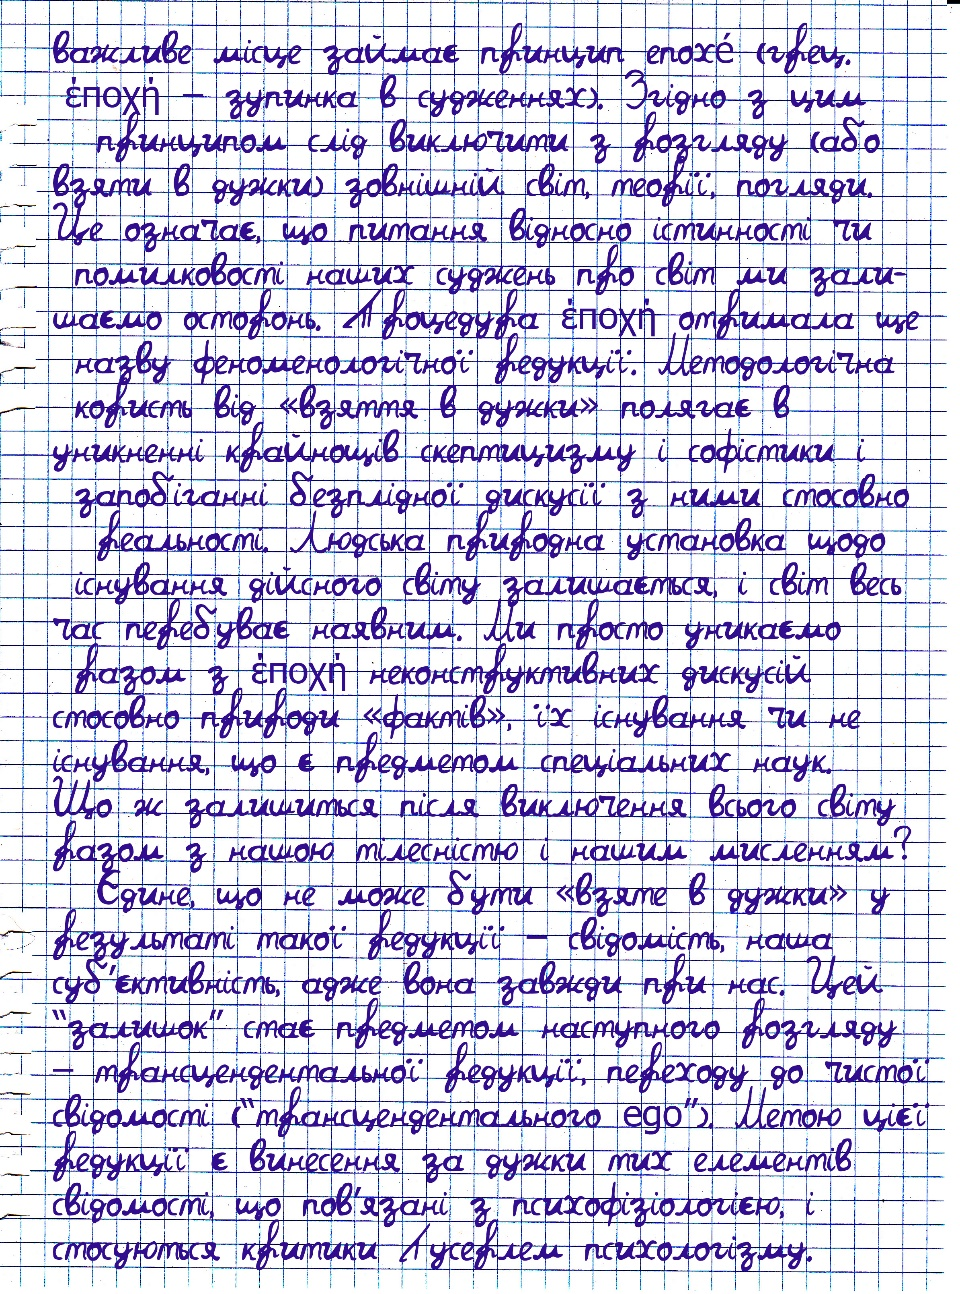 важливе місце займає принцип епохé (грец.
ἐποχή – зупинка в судженнях). Згідно з цим
принципом слід виключити з розгляду (або
взяти в дужки) зовнішній світ, теорії, погляди.
Це означає, що питання відносно істинності чи
помилковості наших суджень про світ ми зали-
шаємо осторонь. Процедура ἐποχή отримала ще
назву феноменологічної редукції. Методологічна
користь від «взяття в дужки» полягає в
уникненні крайнощів скептицизму і софістики і
запобіганні безплідної дискусії з ними стосовно
реальності. Людська природна установка щодо
існування дійсного світу залишається, і світ весь
час перебуває наявним. Ми просто уникаємо
разом з ἐποχή неконструктивних дискусій
стосовно природи «фактів», їх існування чи не
існування, що є предметом спеціальних наук.
Що ж залишиться після виключення всього світу
разом з нашою тілесністю і нашим мисленням?
Єдине, що не може бути «взяте в дужки» у
результаті такої редукції – свідомість, наша
суб'єктивність, адже вона завжди при нас. Цей
"залишок" стає предметом наступного розгляду
– трансцендентальної редукції, переходу до чистої
свідомості ("трансцендентального ego"). Метою цієї
редукції є винесення за дужки тих елементів
свідомості, що пов'язані з психофізіологією, і
стосуються критики Гусерлем психологізму.